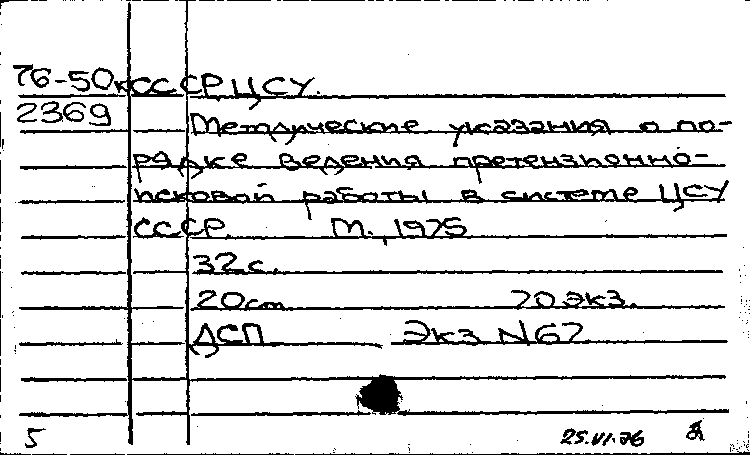 76-50к СССР. ЦСУ.
2369 Методические указания о по-
рядке ведения претензионно-
исковой работы в системе ЦСУ
СССР. М., 1975
32 с.
20 cm 70 экз.
ДСП Экз N67
5 25.VI.76